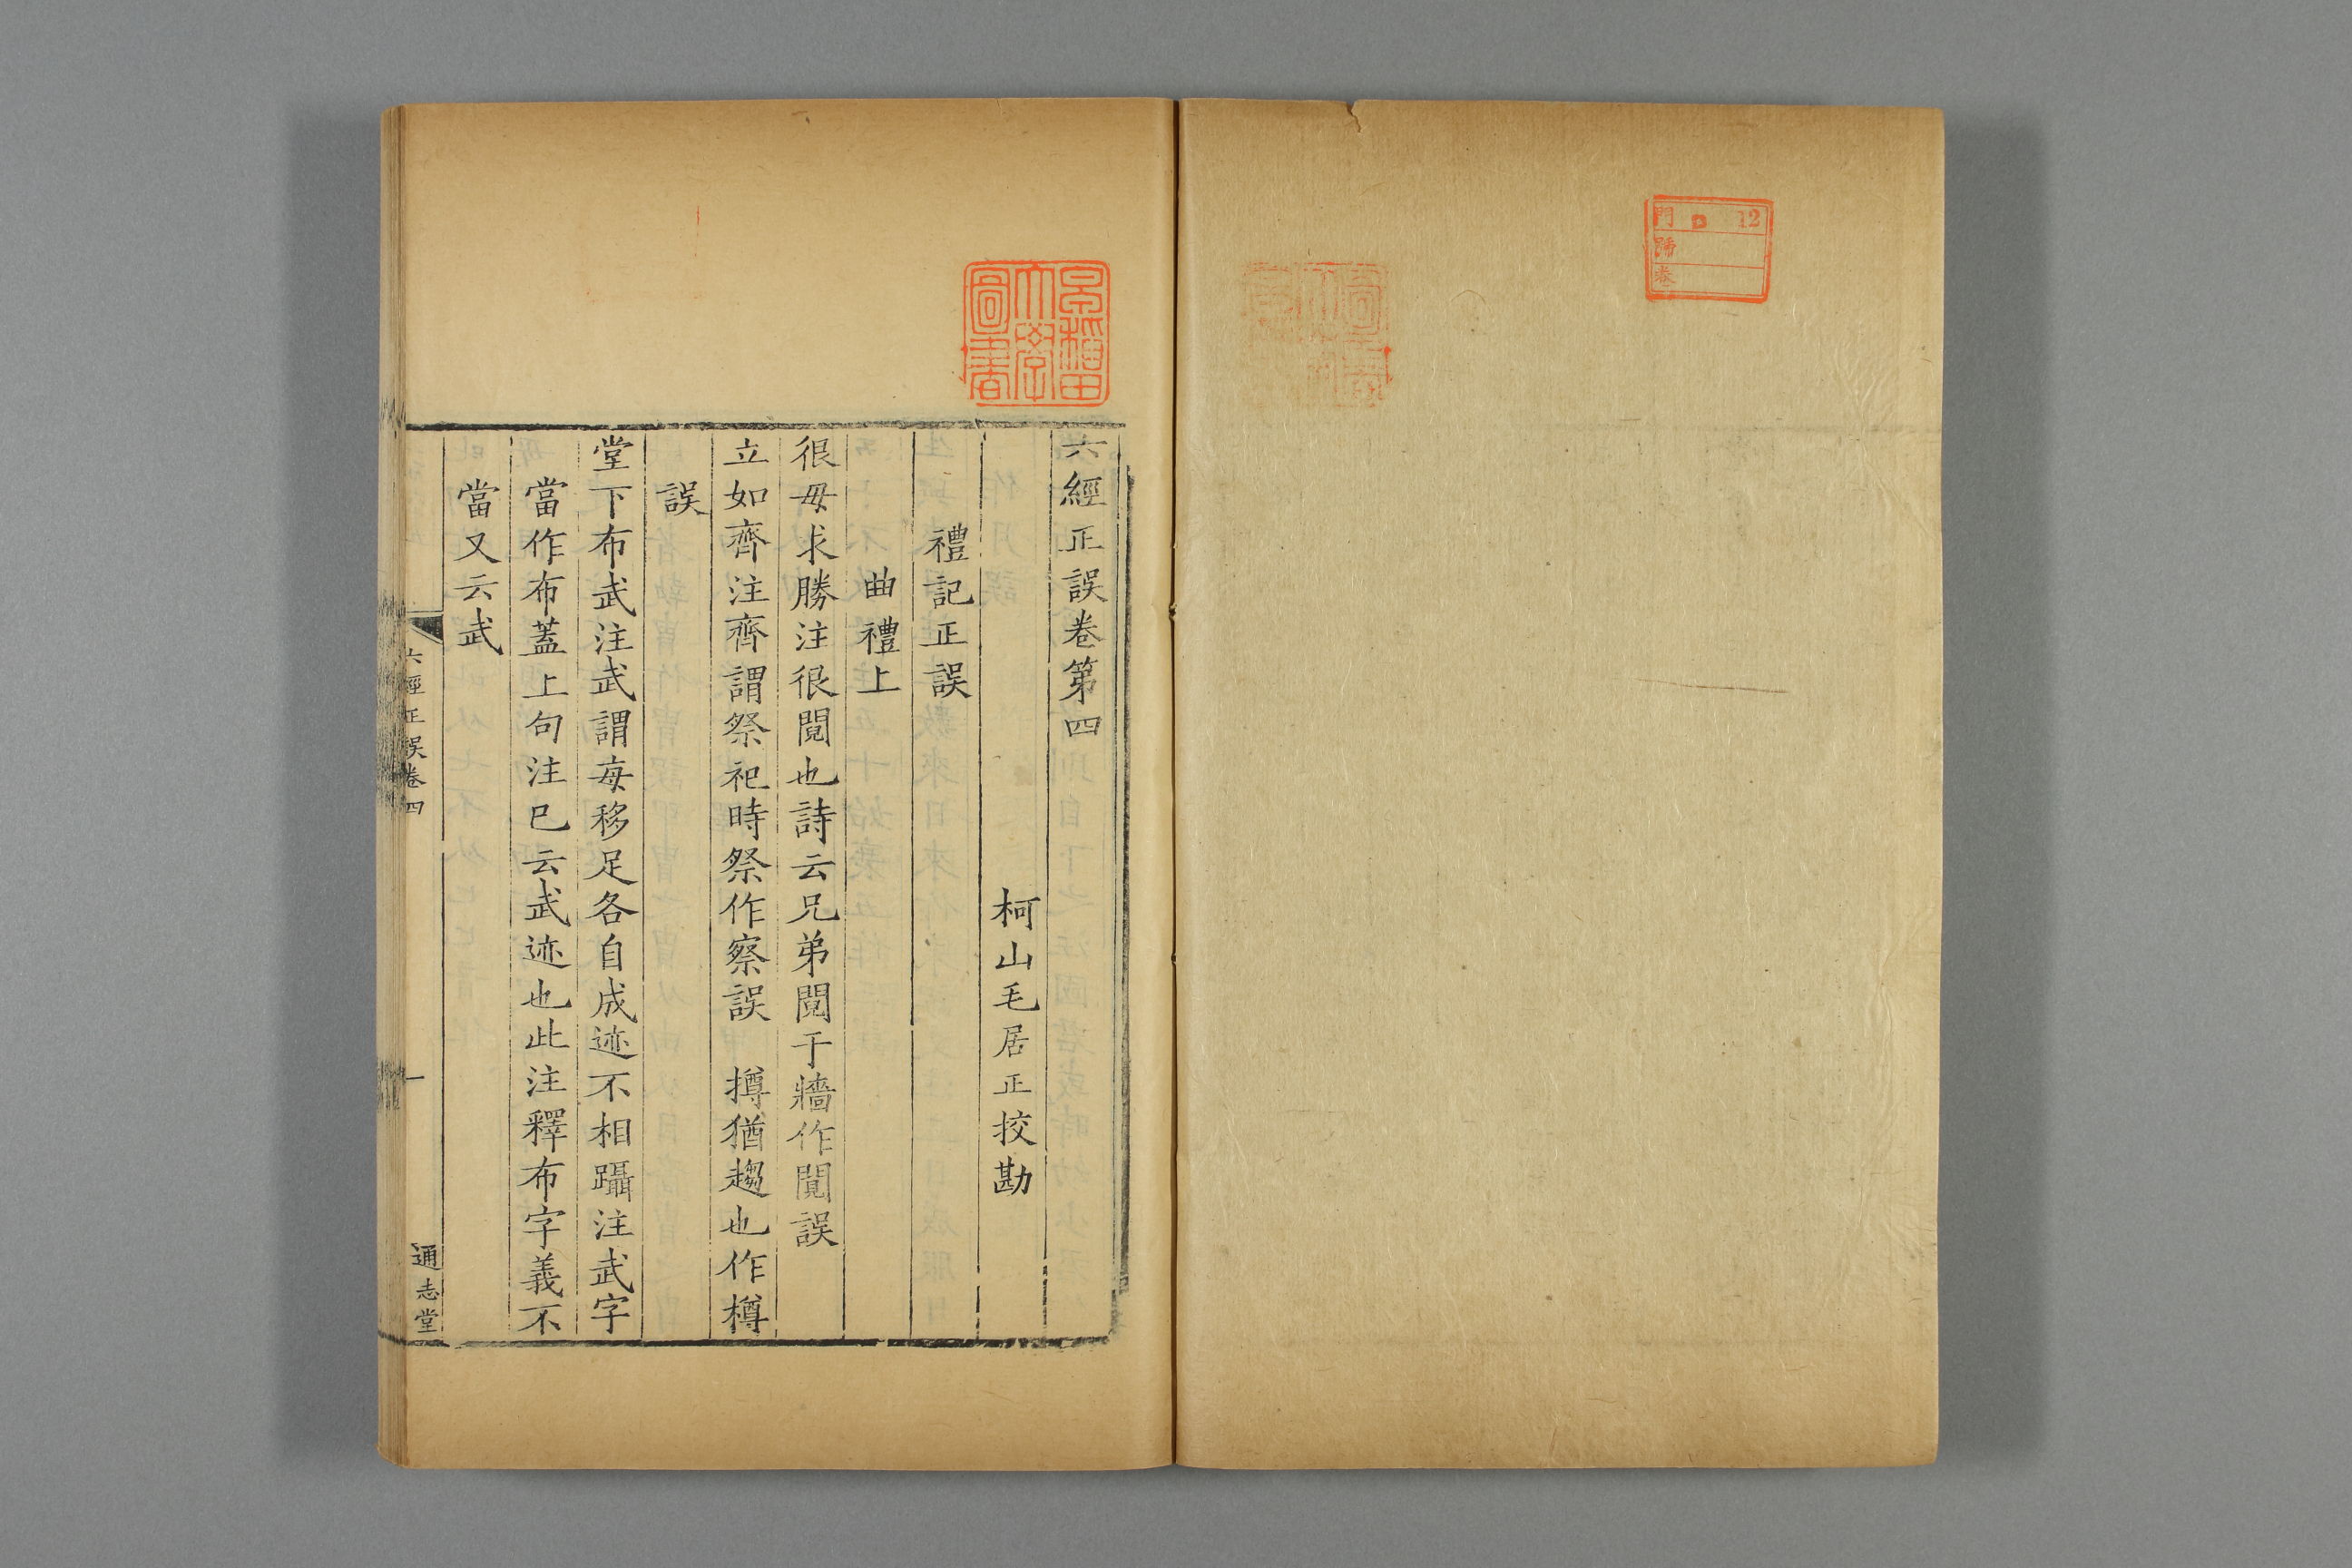 門 D 12
號
卷
早稲田大學圖書
六經正誤卷第四
柯山毛居正挍勘
禮記正誤
曲禮上
很毋求勝注很鬩也詩云兄弟鬩于牆作閲誤
立如齊注齊謂祭祀時祭作察誤 撙猶趨也作樽
誤
堂下布武注武謂每移足各自成迹不相躡注武字
當作布蓋上句注巳云武迹也此注釋布字義不
當又云武
六經正誤卷四
一
通志堂